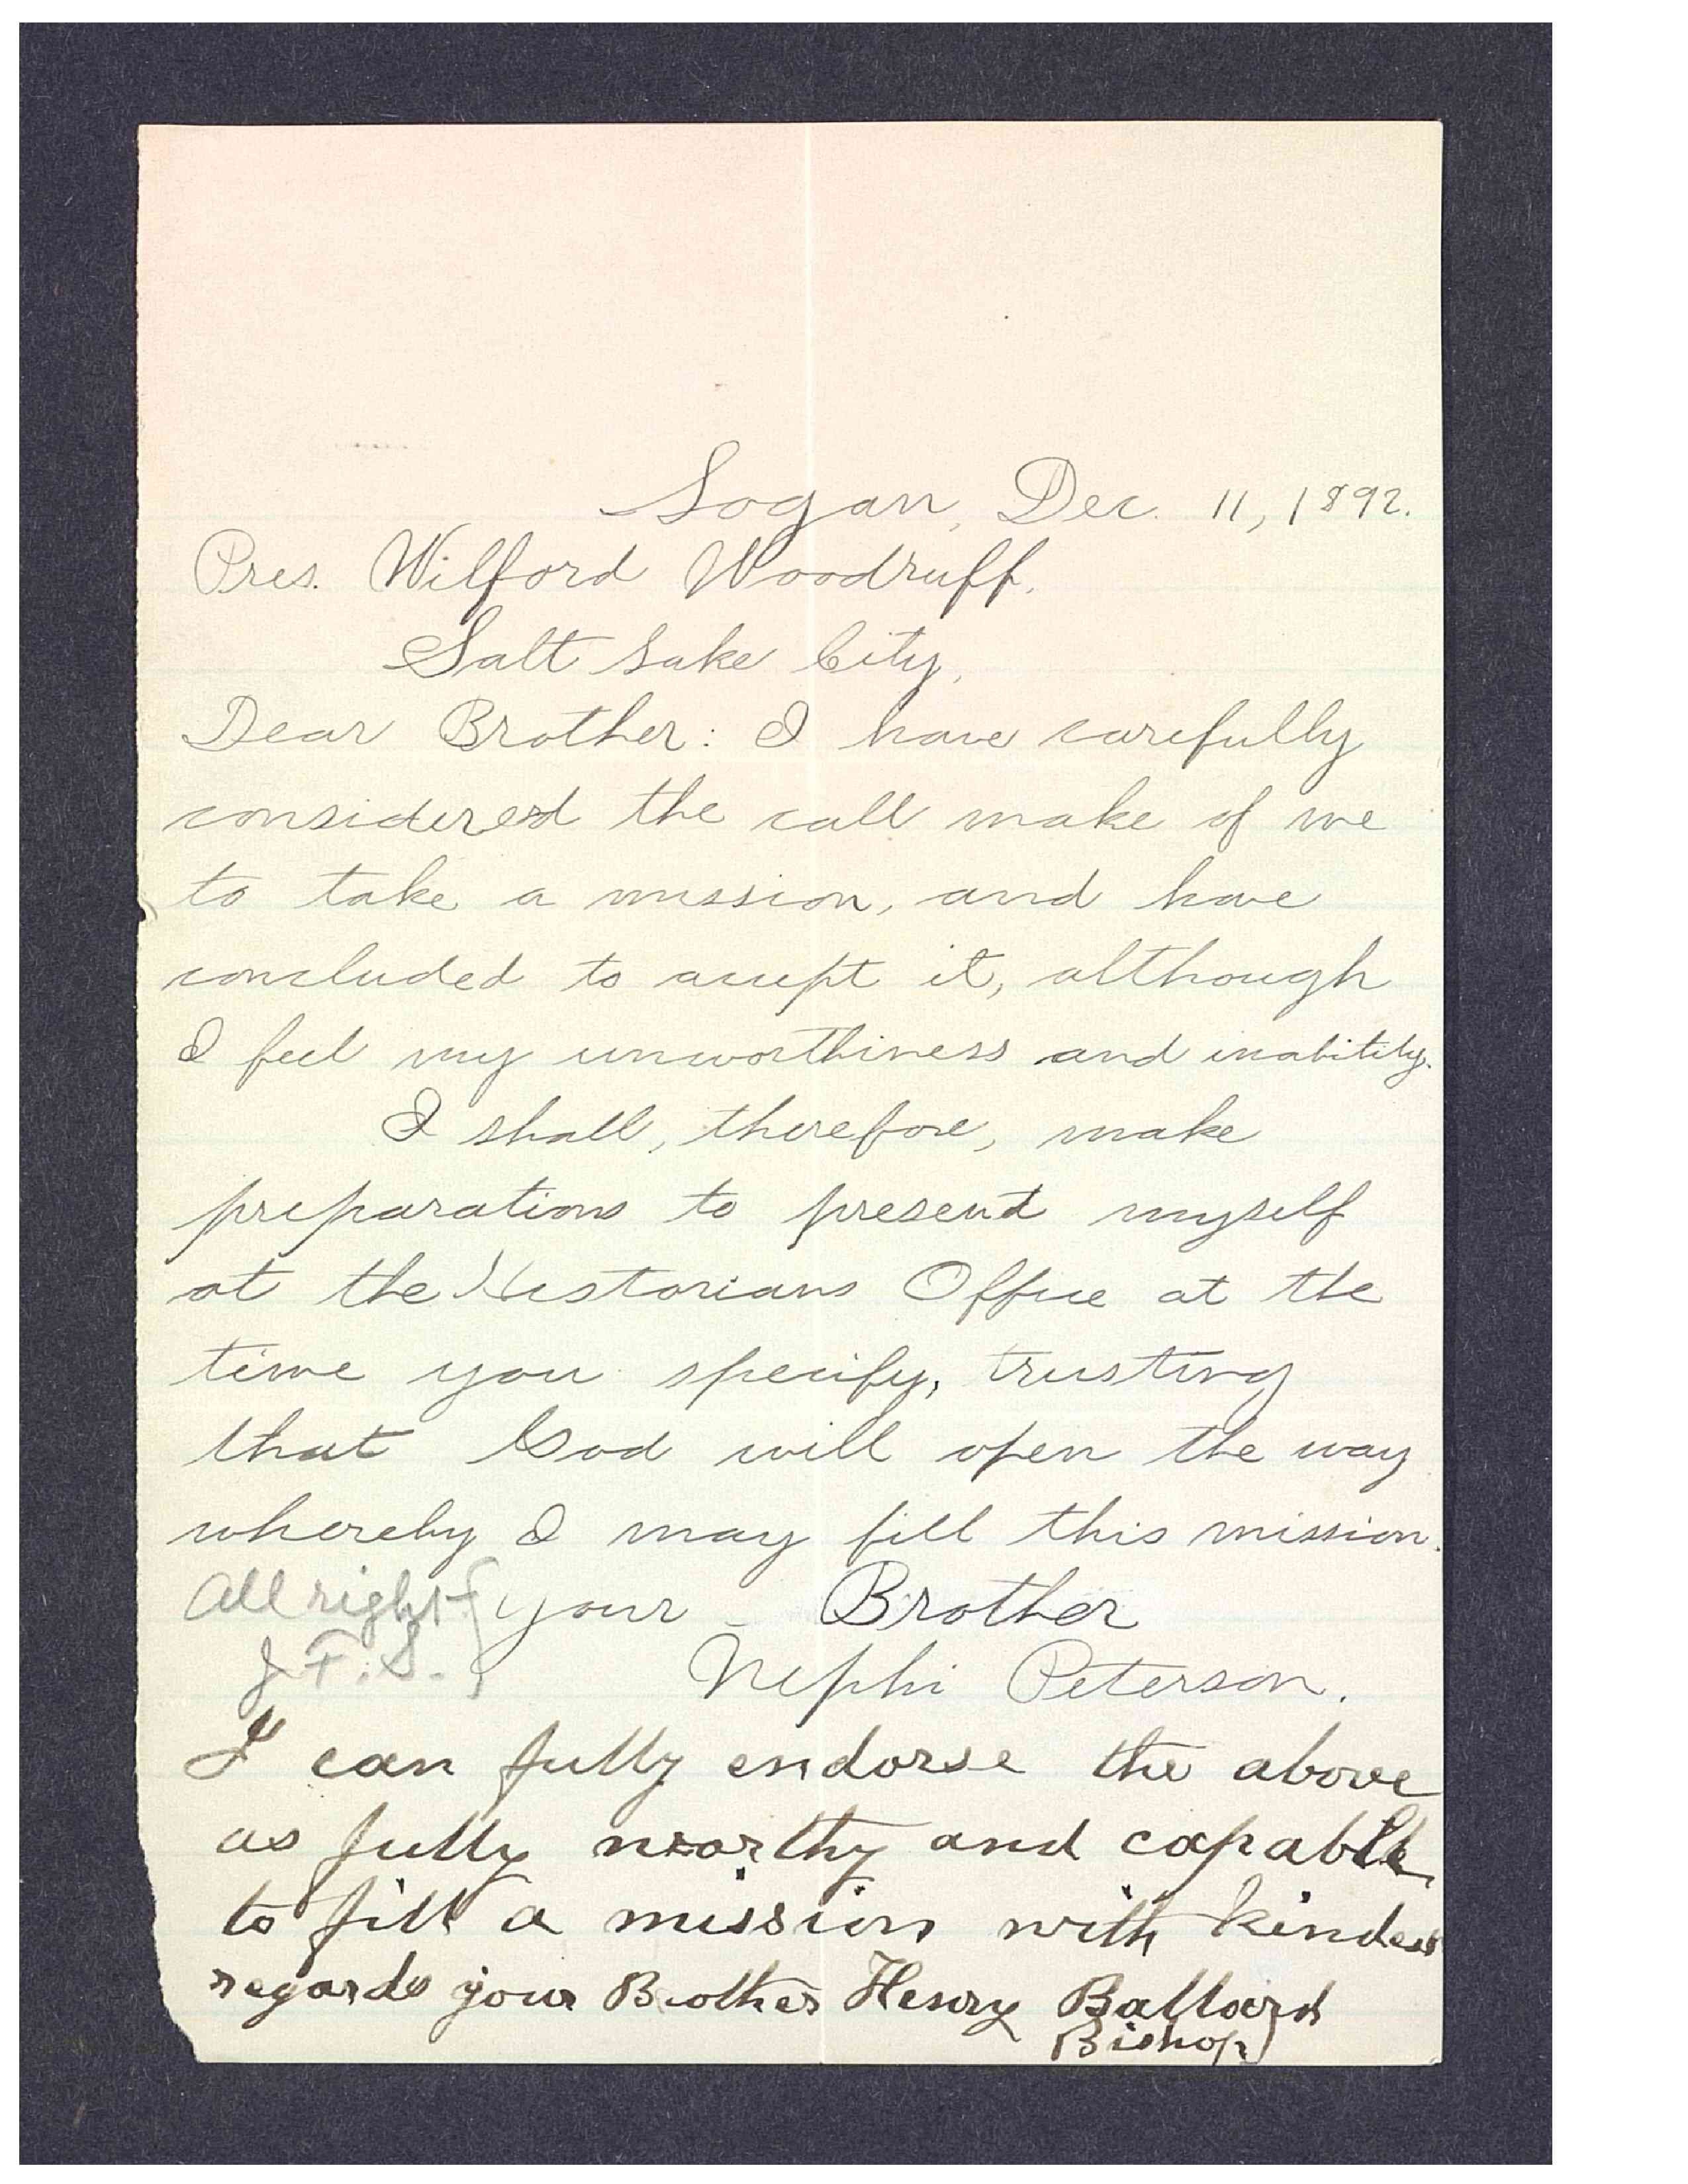 Logan, Dec. 11, 1892.
Pres. Wilford Woodruff.
Salt Lake City,
Dear Brother: I have carefully
considered the call make of me
to take a mission, and have
concluded to accept it, although
I feel my unworthiness and inability.
I shall, therefore, make
preparations to present myself
at the Historians Office at the
time you specify, trusting
that God will open the way
whereby I may fill this mission.
Your Brother
Nephi Peterson.
All right
J. F. S.
I can fully endorse the above
as fully worthy and capable
to fill a mission with kindest
regards your Brother Henry Ballard
Bishop